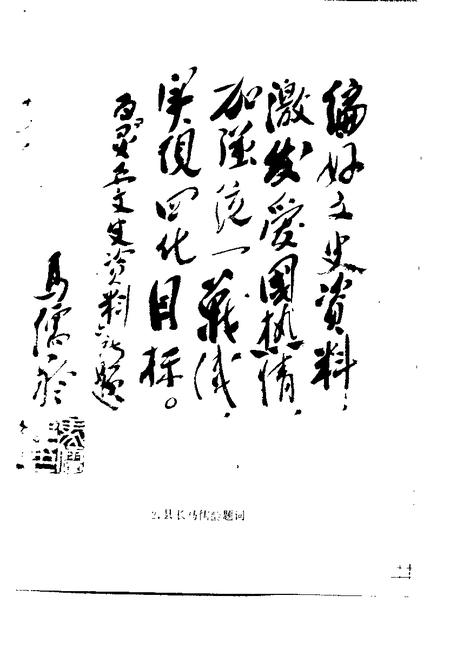 编好文史資料，
激发爱國热情，
加强统一战线，
实现四化目标。
为灵石文史資料创刊题
马儒
2.县长马儒题词